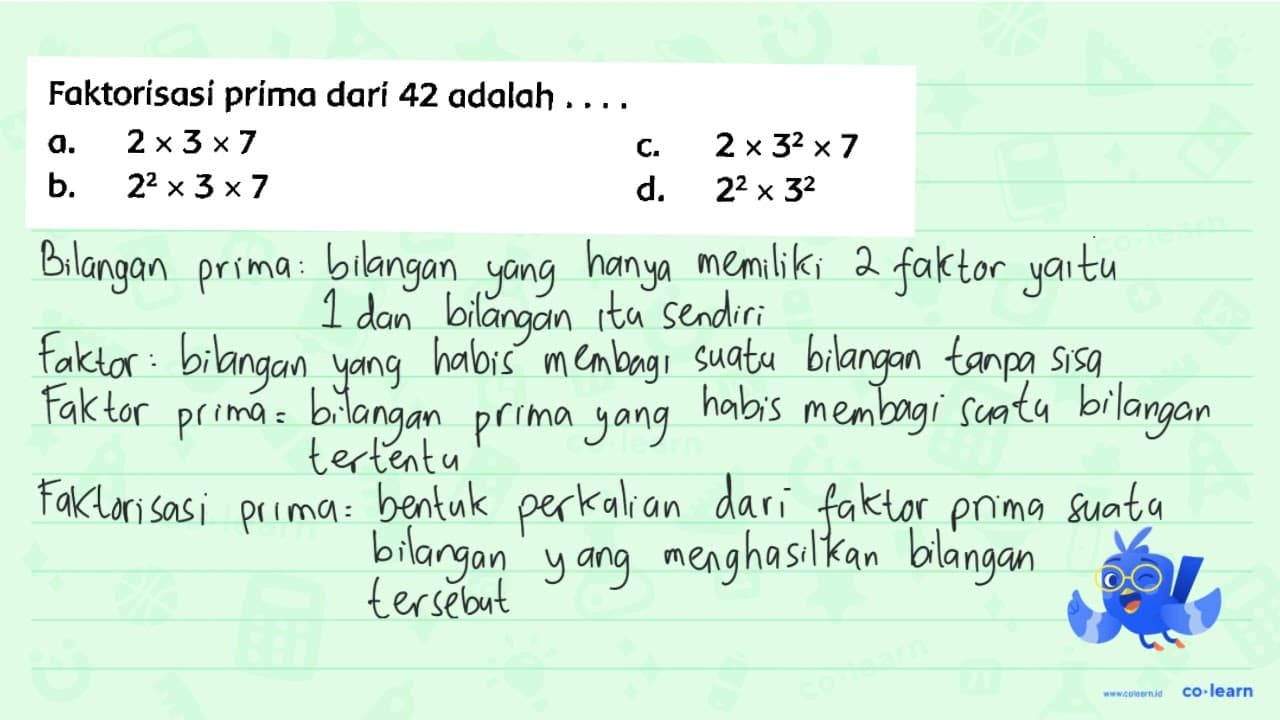 Faktorisasi prima dari 42 adalah . . . .
a. 2 × 3 × 7
c. 2 × 3² × 7
b. 2² × 3 × 7
d. 2² × 3²
Bilangan prima: bilangan yang hanya memiliki 2 faktor yaitu
1 dan bilangan itu sendiri
Faktor: bilangan yang habis membagi suatu bilangan tanpa sisa
Faktor prima: bilangan prima yang habis membagi suatu bilangan
tertentu
Faktorisasi prima: bentuk perkalian dari faktor prima suatu
bilangan yang menghasilkan bilangan
tersebut
www.colearn.id
co·learn